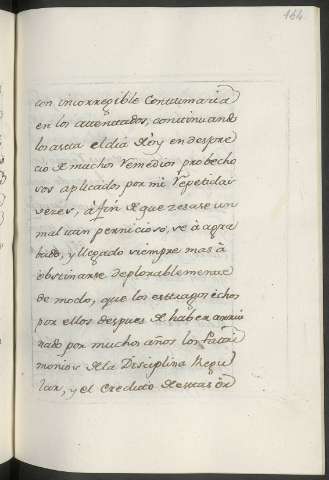 164.
con incorregible Contumacia
en los attentados, continuando
los asta el dia de oy en despre
cio de muchos remedios probecho
sos aplicados por mi repetidas
vezes, à fin de que zesase un
mal tan pernicioso, se à agra
bado, y llegado siempre mas à
obstinarse deplorablemente
de modo, que los estragos echos
por ellos despues de haber
nado por muchos años los Patri
monios de la Disciplina Regu
lar, y el credito de estas